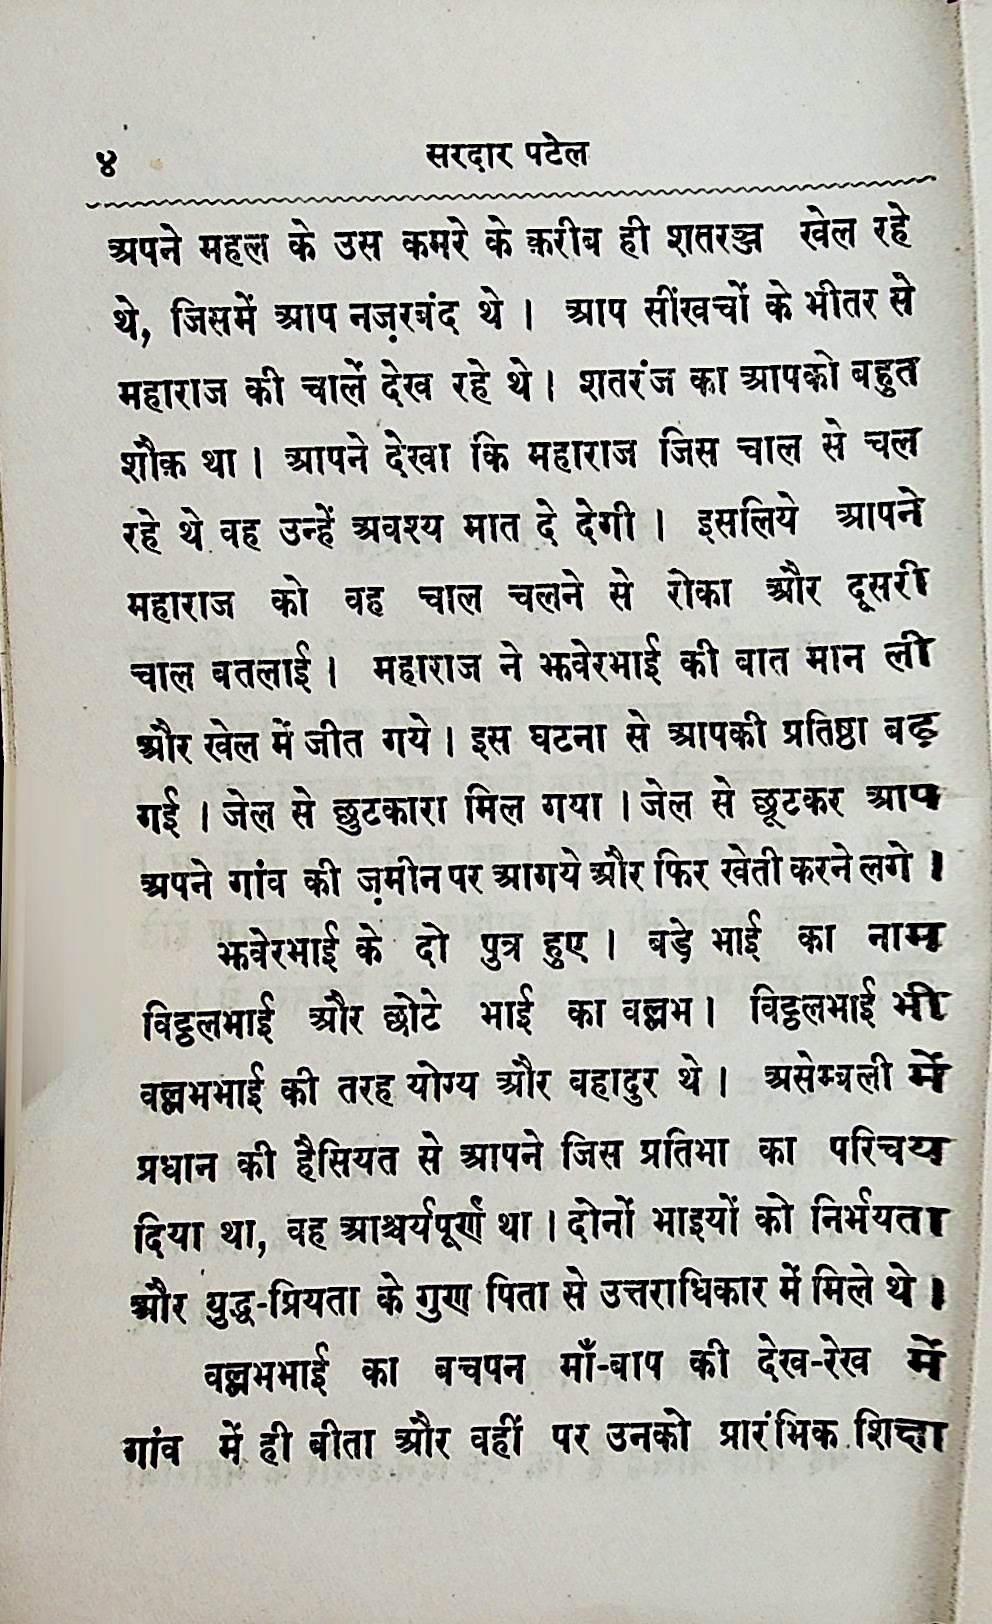 ४ सरदार पटेल
अपने महल के उस कमरे के क़रीब ही शतरञ्ज खेल रहे
थे, जिसमें आप नज़रबंद थे । आप सींखचों के भीतर से
महाराज की चालें देख रहे थे । शतरंज का आपको बहुत
शौक़ था । आपने देखा कि महाराज जिस चाल से चल
रहे थे वह उन्हें अवश्य मात दे देगी । इसलिये आपने
महाराज को वह चाल चलने से रोका और दूसरी
चाल बतलाई । महाराज ने झवेरभाई की बात मान ली
और खेल में जीत गये । इस घटना से आपकी प्रतिष्ठा बढ़
गई । जेल से छुटकारा मिल गया । जेल से छूटकर आप
अपने गांव की ज़मीन पर आगये और फिर खेती करने लगे ।
झवेरभाई के दो पुत्र हुए । बड़े भाई का नाम
विट्ठलभाई और छोटे भाई का वल्लभ । विट्ठलभाई भी
वल्लभभाई की तरह योग्य और बहादुर थे । असेम्बली में
प्रधान की हैसियत से आपने जिस प्रतिभा का परिचय
दिया था, वह आश्चर्यपूर्ण था । दोनों भाइयों को निर्भयता
और युद्ध-प्रियता के गुण पिता से उत्तराधिकार में मिले थे ।
वल्लभभाई का बचपन माँ-बाप की देख-रेख में
गांव में ही बीता और वहीं पर उनको प्रारंभिक शिक्षा